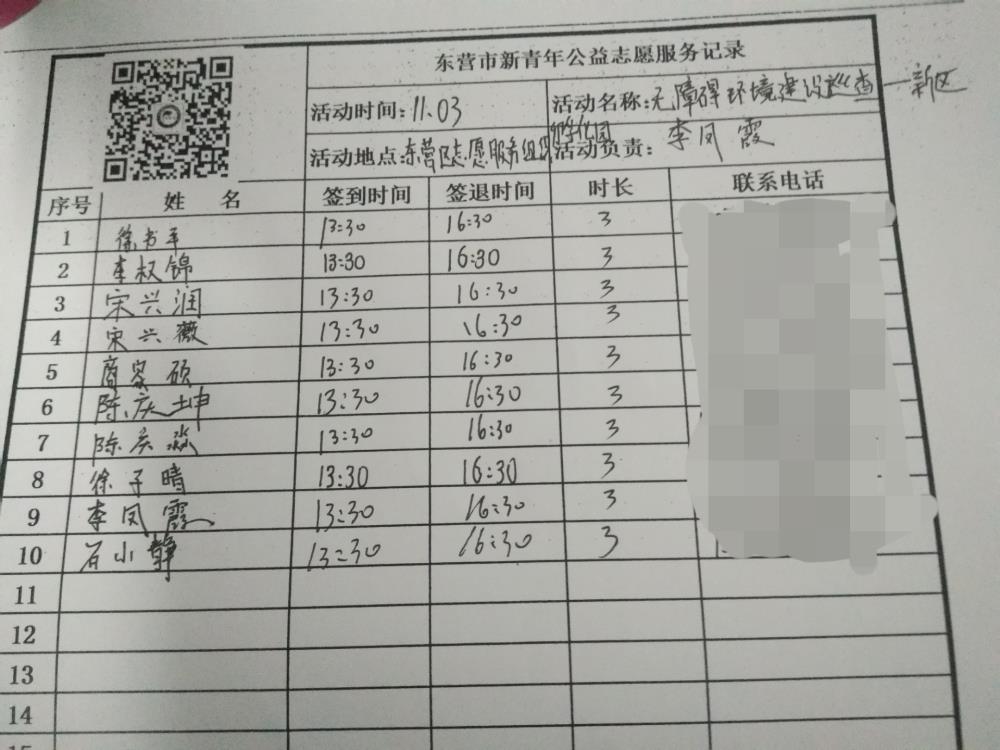 东营市新青年公益志愿服务记录
活动时间:11.03 活动名称:无障碍环境建设巡查一新区
活动地点:东营区志愿服务组织孵化园 活动负责:李凤霞
序号 姓名 签到时间 签退时间 时长 联系电话
1 徐书平 13:30 16:30 3
2 李权锦 13:30 16:30 3
3 宋兴润 13:30 16:30 3
4 宋兴薇 13:30 16:30 3
5 商家硕 13:30 16:30 3
6 陈庆坤 13:30 16:30 3
7 陈庆淼 13:30 16:30 3
8 徐子晴 13:30 16:30 3
9 李凤霞 13:30 16:30 3
10 石小静 13:30 16:30 3
11
12
13
14